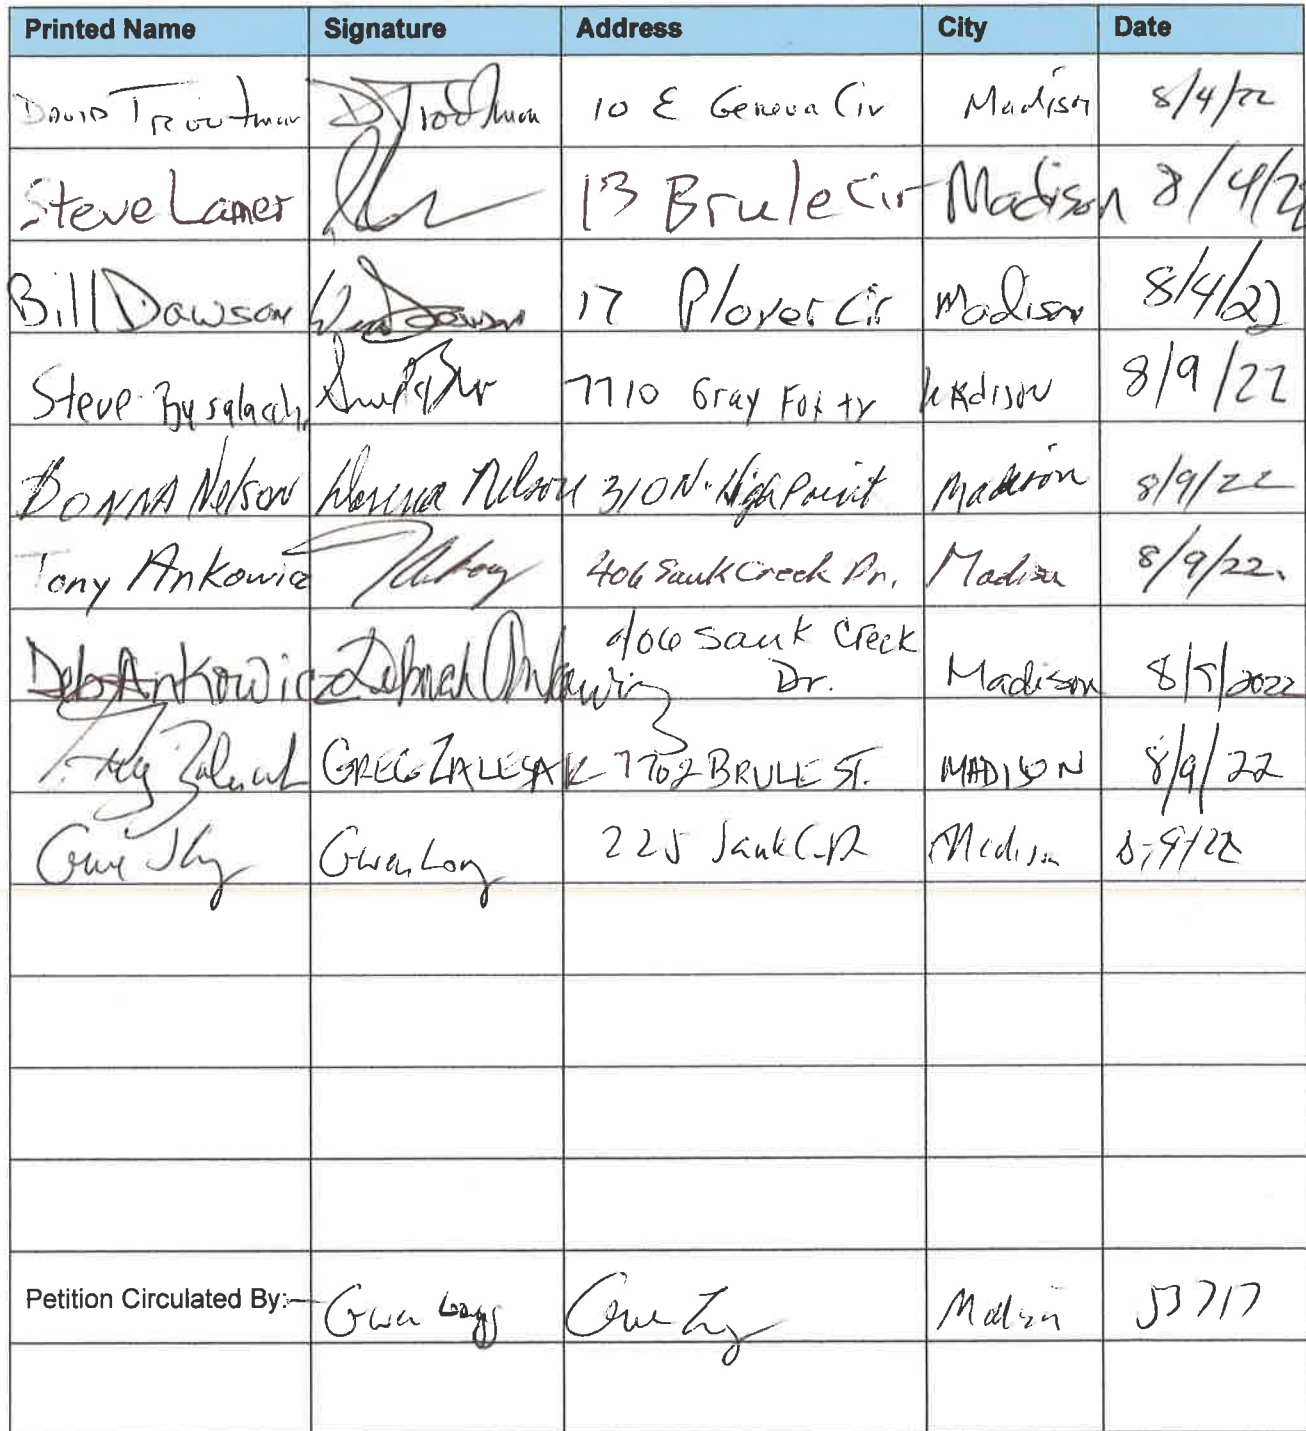 Printed Name Signature Address City Date
David Troutman D Troutman 10 E Geneva Cir Madison 8/4/22
Steve Lamer 13 Brule Cir Madison 8/4/22
Bill Dawson Dawson 17 Plover Cir Madison 8/4/22
Steve 7710 Gray Fox tr Madison 8/9/22
DONNA Nelson Donna Nelson 310 N. High Point Madison 8/9/22
Tony Ankowicz 406 Sauk Creek Dr. Madison 8/9/22.
Deb Ankowicz Deborah Ankowicz 406 Sauk Creek
Dr. Madison 8/9/2022
Greg Zalesak GREG ZALESAK 7702 BRULE ST. MADISON 8/9/22
Gwen Long Gwen Long 225 Sauk C. Dr Madison 8/9/22
Petition Circulated By: Gwen Long Gwen Long Madison 53717